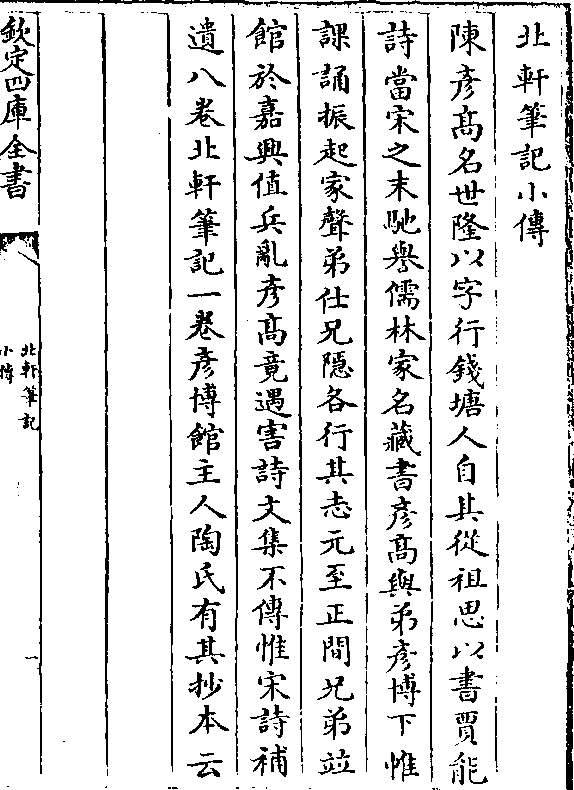 北軒筆記小傳
陳彦髙名世隆以字行錢塘人自其從祖思以書賈能
詩當宋之末馳譽儒林家名藏書彦髙與弟彦博下惟
課誦振起家聲弟仕兄隠各行其志元至正間兄弟竝
館於嘉興值兵亂彦髙竟遇害詩文集不傳惟宋詩補
遺八卷北軒筆記一卷彦博館主人陶氏有其抄本云
欽定四庫全書
北軒筆記
小傳
一